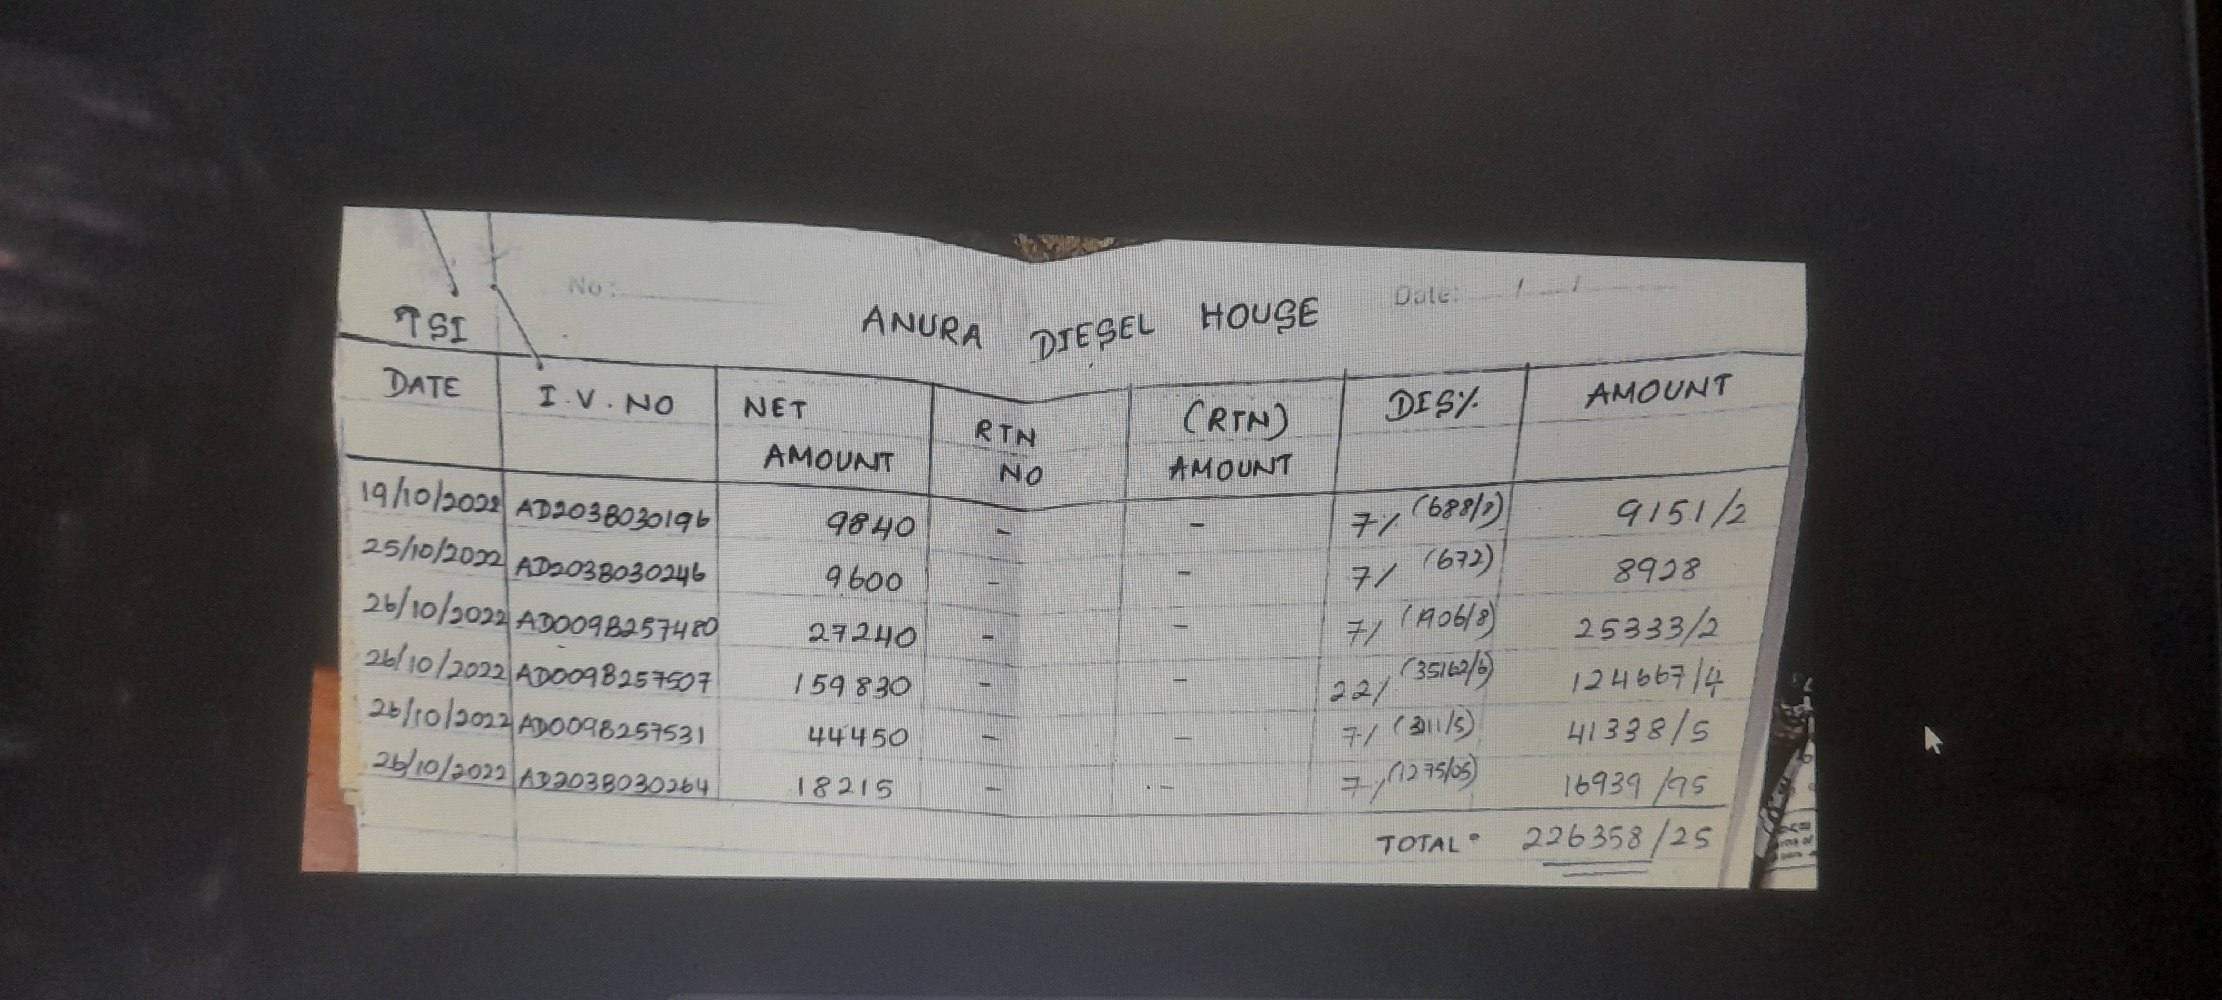 No: Date: / /
TSI ANURA DIESEL HOUSE
DATE I.V. NO NET AMOUNT RTN NO (RTN) AMOUNT DIS% AMOUNT
19/10/2022 AD203B030196 9840 - - 7% (688/8) 9151/2
25/10/2022 AD203B030246 9600 - - 7% (672) 8928
26/10/2022 AD009B257480 27240 - - 7% (1906/8) 25333/2
26/10/2022 AD009B257507 159830 - - 22% (35162/6) 124667/4
26/10/2022 AD009B257531 44450 - - 7% (3111/5) 41338/5
26/10/2022 AD203B030264 18215 - - 7% (1275/05) 16939/95
TOTAL = 226358/25